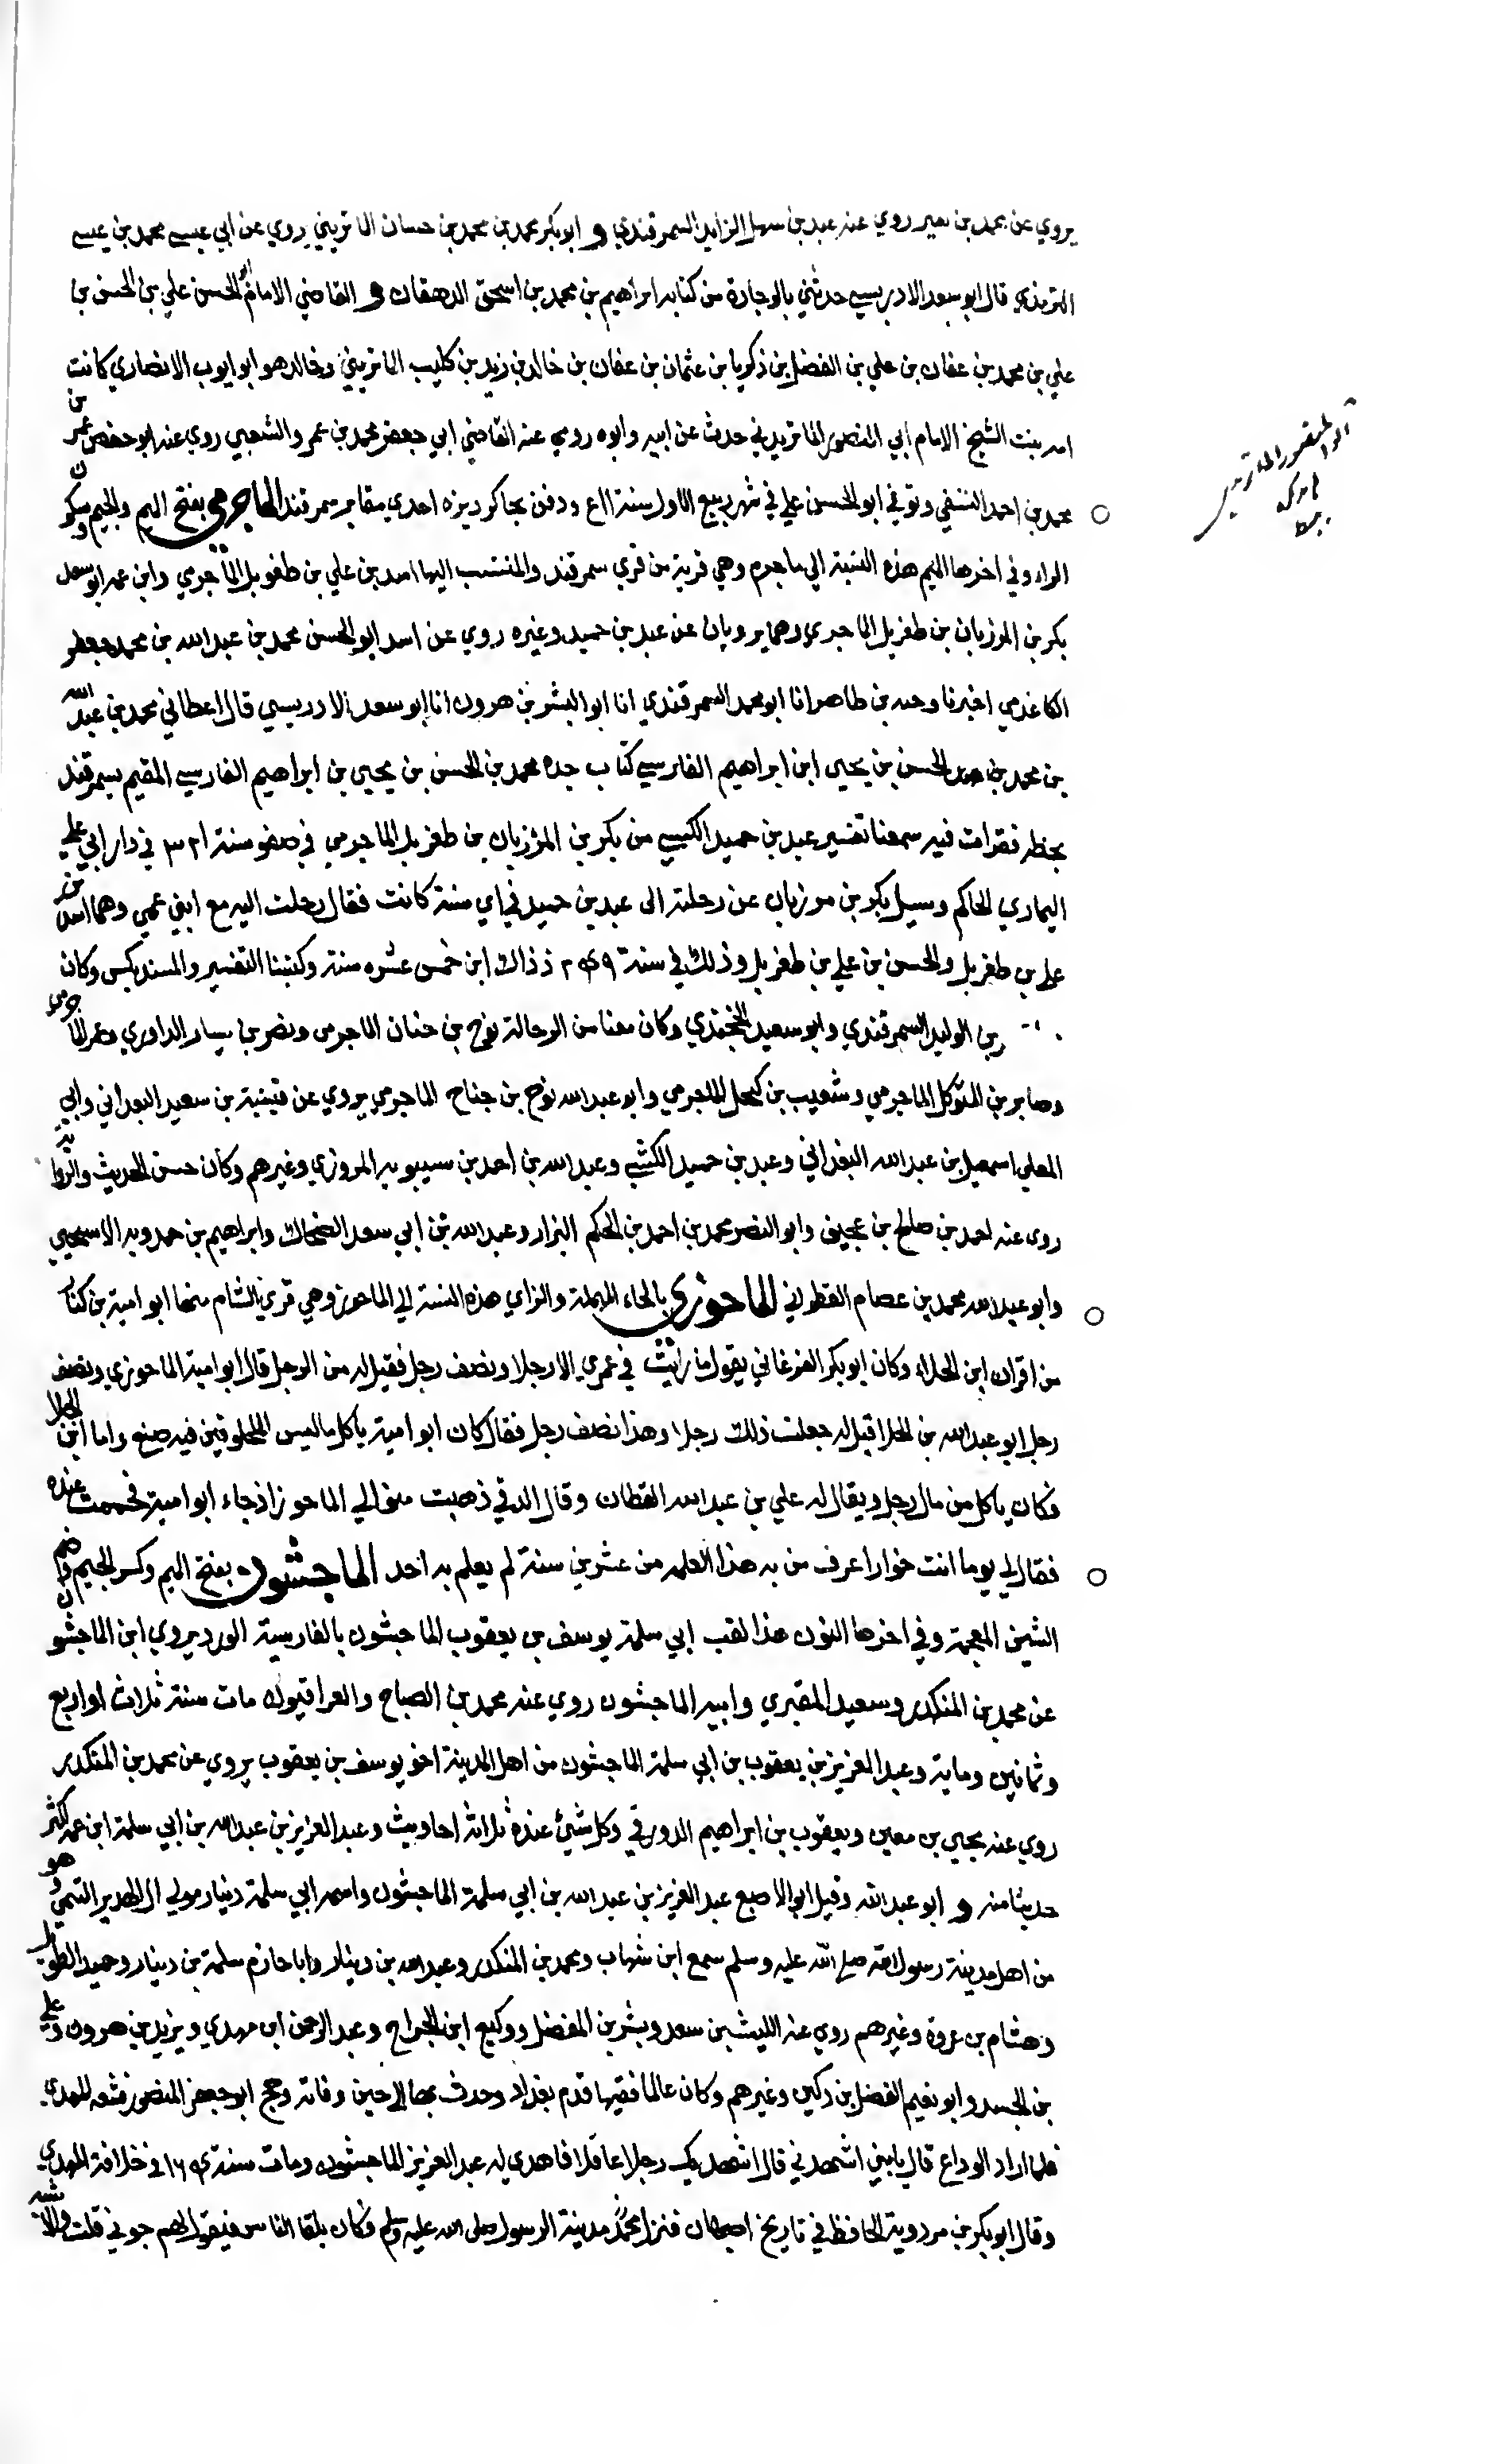 يروي عن محمد بن نصير روي عنه عبد بن سهل الزاهد السمرقندي و ابو بكر محمد بن محمد بن حسان الماتريني روي عن ابي عيسي محمد بن عيسي
الترمذي قال ابو سعد الادريسي حدثني بالوجادة من كتابه ابراهيم بن محمد بن اسحق الدهقان و القاضي الامام ابو الحسن علي بن الحسن بن
علي بن محمد بن عفان بن علي بن الفضل بن زكريا بن عثمان بن عفان بن خالد بن زيد بن كليب الماتريني وخالد هو ابو ايوب الانصاري كانت
امه بنت الشيخ الامام ابي المنصور الماتريدي حدث عن ابيه وابوه روي عنه القاضي ابي جعفر محمد بن عمرو الشعبي روي عنه ابو حفص عمر بن
محمد بن احمد النسفي وتوفي ابو الحسن علي في شهر ربيع الاول سنة ٥١١ ودفن بجاكرديزه احدي مقابر سمرقند الماجرمي بفتح الميم والجيم وسكون
الراء وفي اخرها الميم هذه النسبة الي ماجرم وهي قرية من قري سمرقند والمنتسب اليها اسد بن علي بن طغريل الماجرمي وابن عمه ابو سعد
بكر بن المرزبان بن طغريل الماجرمي وهما يرويان عن عبد بن حميد وغيره روي عن اسد ابو الحسن محمد بن عبد الله بن محمد جعفر
الكاغدي اخبرنا وجيه بن طاهر انا ابو محمد السمرقندي انا ابو البشر بن هرون انا ابو سعد الادريسي قال اعطاني محمد بن عبد الله
بن محمد بن الحسن بن يحيي ابن ابراهيم الفارسي كتاب جده محمد بن الحسن بن يحيي بن ابراهيم الفارسي المقيم بسمرقند
بخطه فقرات فيه سمعنا تفسير عبد بن حميد الكسي من بكر بن المرزبان بن طغريل الماجرمي في صفر سنة ٣٢١ في دار ابي علي
اليماري الحاكم وسيل بكر بن مرزبان عن رحلته الى عبد بن حميد في اي سنة كانت فقال رحلت اليه مع ابني عمي وهما اسد بن
علي بن طغريل والحسن بن علي بن طغريل وذلك في سنة ٢٤٩ اذ ذاك ابن خمس عشره سنة وكتبنا التفسير والمسند بكس وكان
بن الوليد السمرقندي وابو سعيد الخجندي وكان معنا من الرحالة نوح بن حنان الماجرمى ونصر بن سيار الداوري وعمر الماجرمى
وصابر بن المتوكل الماجرمي وشعيب بن كحل الماجرمي وابو عبد الله نوح بن جناح الماجرمي يروي عن قتيبة بن سعيد البغداني وابي
المعلي اسمعيل بن عبد الله البغداني وعبد بن حميد الكشي وعبد الله بن احمد بن سيبويه المروزي وغيرهم وكان حسن الحديث والرواية
روى عنه احمد بن صالح بن عجيف وابو النصر محمد بن احمد بن الحكم البزار وعبد الله بن ابي سعد الضحاك وابراهيم بن حمدويه الاسمحي
وابو عبد الله محمد بن عصام القطواني الماحوزي بالحاء المهملة والزاي هذه النسبة الي الماحوز وهي قري الشام منها ابو امية بن كنار
من اقران ابن الجلاء وكان ابو بكر الفرغاني يقول ما رايت في عمري الا رجلا ونصف رجل فقيل له من الرجل قال ابو امية الماحوزي ونصف
رجل ابو عبد الله بن الجلا قيل له جعلت ذلك رجلا وهذا نصف رجل فقال كان ابو امية ياكل ما ليس للمخلوقين فيه صنع واما ابن الجلا
فكان ياكل من مال رجل ويقال له علي بن عبد الله القطان وقال الدقي ذهبت الي الماحوز اذ جاء ابو امية فخممت عنده
فقال لي يوما انت خوار اعرف من به هذا العلة من عشرين سنة لم يعلم به احد الماجشون بفتح الميم وكسر الجيم وضم
الشين المعجمة وفي اخرها النون هذا لقب ابي سلمة يوسف بن يعقوب الماجشون بالفارسية الورد يروي ابن الماجشون
عن محمد بن المنكدر وسعيد المقبري وابيه الماجشون روي عنه محمد بن الصباح والعراقيون مات سنة ثلاث او اربع
وثمانين وماية وعبد العزيز بن يعقوب بن ابي سلمة الماجشون من اهل المدينة اخو يوسف بن يعقوب يروي عن محمد بن المنكدر
روي عنه يحيي بن معين ويعقوب بن ابراهيم الدورقي وكل شيئ عنده ثلاثة احاديث وعبد العزيز بن عبد الله بن ابي سلمة ابن عمه اكثر
حديثا منه و ابو عبد الله وقيل ابو الاصبغ عبد العزيز بن عبد الله بن ابي سلمة الماجشون واسم ابي سلمة دينار مولي ال الهدير التيمي وهو
من اهل مدينة رسول الله صلي الله عليه وسلم سمع ابن شهاب ومحمد بن المنكدر وعبد الله بن دينار وابا حازم سلمة بن دينار وحميد الطويل
وهشام بن عروة وغيرهم روي عنه الليث بن سعد وبشر بن المفضل ووكيع ابن الجراح وعبد الرحمن ابن مهدي ويزيد بن هرون وعلي
بن الجعد وابو نعيم الفضل بن دكين وغيرهم وكان عالما فقيها قدم بغداد وحدث بها الي حين وفاته وحج ابو جعفر المنصور فشيعه المهدي
فلما اراد الوداع قال يا بني استهدني قال استهديك رجلا عاقلا فاهدي له عبد العزيز الماجشون ومات سنة ١٦٤ في خلافة المهدي
وقال ابو بكر بن مردوية الحافظ في تاريخ اصبهان فنزل مدينة الرسول صلى الله عليه وسلم فكان يلقا الناس فيقول لهم جوني قلت
ابو المنصور الماتريدي